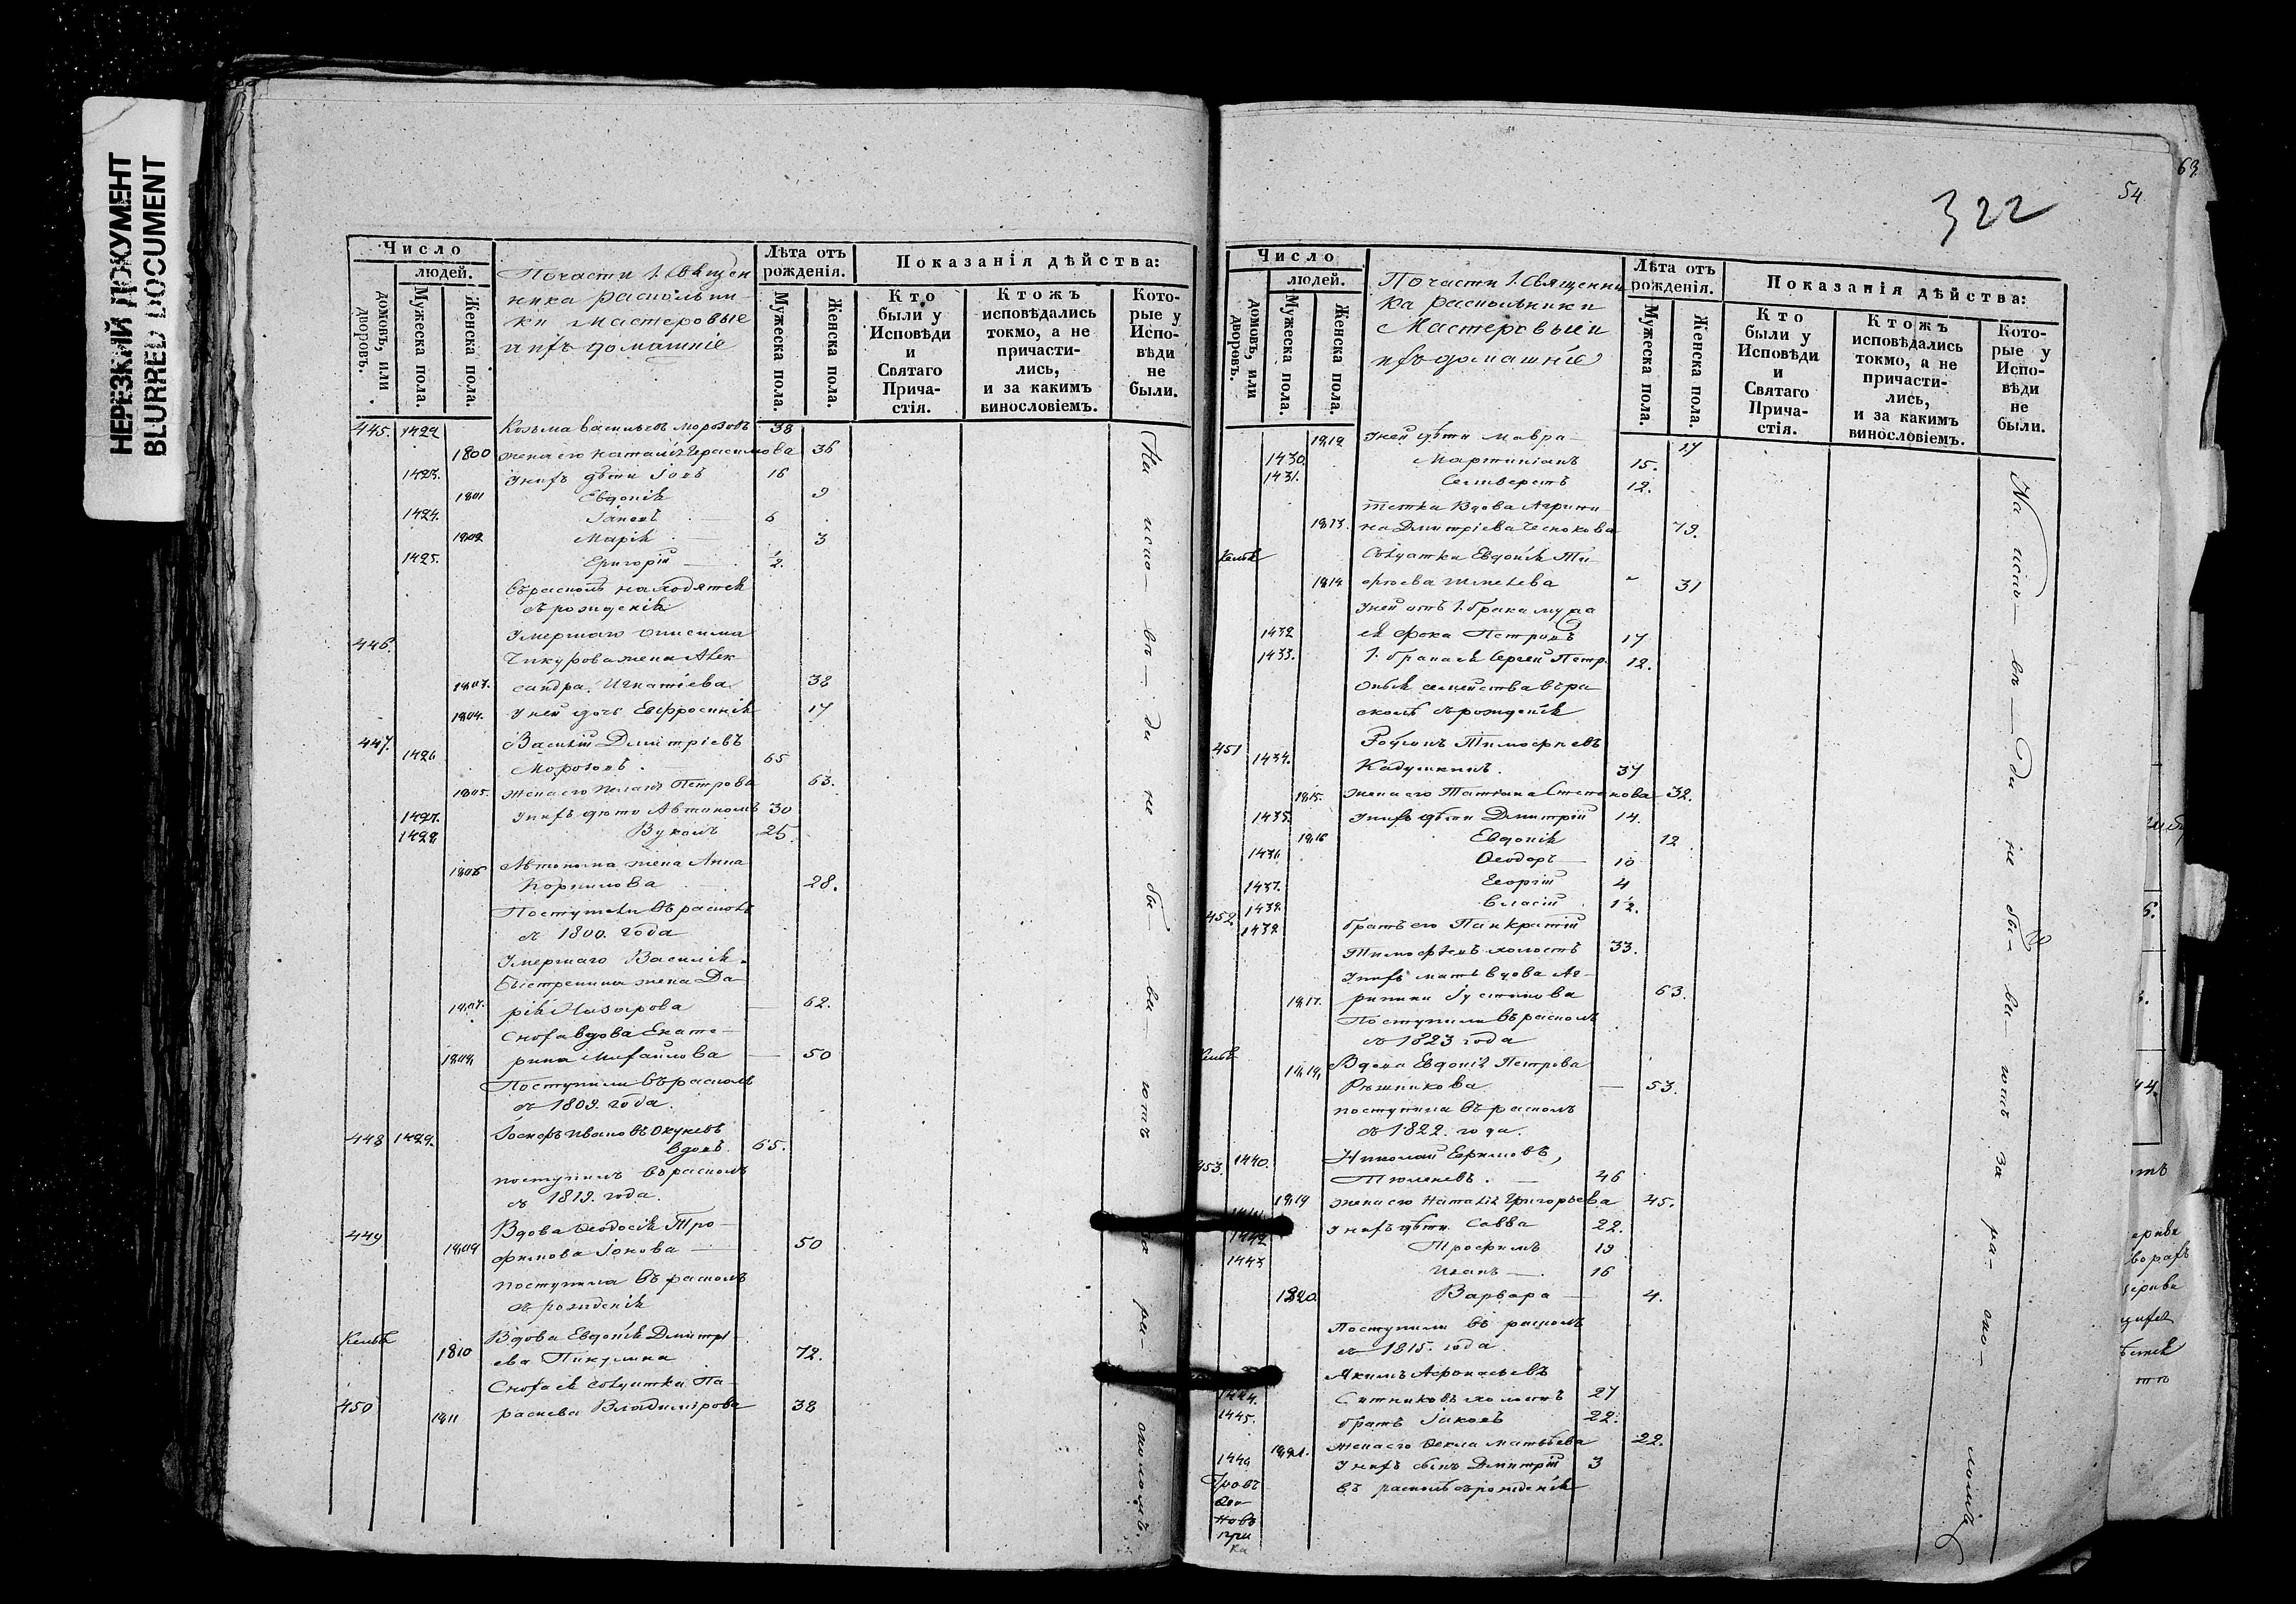 НЕРЕЗКИЙ ДОКУМЕНТ
BLURRED DOCUMENT
Число
людей.
домовъ, или дворовъ.
Мужеска пола.
Женска пола.
По части 1. Священ
ника раскольни-
ки Мастеровые
и ихъ домашніе
Лѣта отъ рожденія.
Мужеска пола.
Женска пола.
Показанія дѣйства:
Кто были у Исповѣди и Святаго Причастія.
Ктожъ исповѣдались токмо, а не причастились, и за какимъ винословіемъ.
Которые у Исповѣди не были.
445. 1422 Козьма Васильевъ Морозовъ 38
1800 жена его Наталія Герасимова 36
1423. У нихъ дѣти Іовъ 16
1801 Евдокія 9
1424. Іаковъ 6
1802 Марія 3
1425. Григорій ½.
Въ расколѣ находятся
съ рожденія
446. Умершаго Онисима
Чикурова жена Алек
1803. сандра Игнатіева 38
1804. У ней дочь Евфросинія 17
447. Василій Дмитріевъ
1426 Морозовъ. 65
1805. жена его Пелагія Петрова 63.
1427. У нихъ дѣти Автономъ 30
1428. Вуколъ 25.
1806 Автонома жена Анна
Корнилова 28.
Поступили въ расколъ
съ 1800. года
Умершаго Василія
Быстренина жена Да-
1807. рія Назарова 62.
Сноха вдова Екате-
1808. рина Михайлова 50
Поступили въ расколъ
съ 1809. года.
448 1429. Іосифъ Ивановъ Окуневъ
вдовъ. 65.
поступилъ въ расколъ
съ 1819. года.
449 Вдова Ѳеодосія Тро-
1809 фимова Іонова 50
поступила въ расколъ
съ рожденія
Келья Вдова Евдокія Дмитрі-
1810 ева Пикулина 72.
Сноха ея солдатка Па-
450 1811 раскева Владимірова 38
На испо- вѣ- ди не бы- ва- ютъ за ра- сколомъ.
63
54
322
Число
людей.
домовъ, или дворовъ.
Мужеска пола.
Женска пола.
По части 1. Священни
ка раскольники
Мастеровыи
ихъ домашніе
Лѣта отъ рожденія.
Мужеска пола.
Женска пола.
Показанія дѣйства:
Кто были у Исповѣди и Святаго Причастія.
Ктожъ исповѣдались токмо, а не причастились, и за какимъ винословіемъ.
Которые у Исповѣди не были.
1812 У ней дѣти Мавра 17
1430. Мартиніанъ 15.
1431. Селиверстъ 12.
тетка Вдова Агрипи
1813. на Дмитріева Чеснокова 79.
Келья Солдатка Евдокія
1814 Шмелева 31
У ней отъ 1. брака мужа
1432 ея Фока Петровъ 17
1433. 1. брака ея Сергей Петр. 12.
семейства въ ра-
сколѣ съ рожденія
451 Родіонъ Тимофеевъ
1434. Кадушкинъ. 37
1815. жена его Татіана Степанова 32.
1435. У нихъ дѣти Дмитрій 14.
1816 Евдокія 12
1436 Ѳеодоръ 10
1437. Георгій 4
1438. Власій 1½.
452 1439. братъ его Панкратій
Тимофеевъ холостъ 33.
У нихъ мать вдова Аг-
1817. рипина Іустинова 63.
Поступили въ расколъ
съ 1823 года
Келья Вдова Евдокія Петрова
1818. 53.
поступила въ расколъ
съ 1822. года.
453. 1440. Николай Ефимовъ,
Тюленевъ. 46
1819 жена его Наталія Григорьева 45.
1441 У нихъ дѣти Савва 22.
1442 Трофимъ 19
1443 Иванъ 16
1820 Варвара 4.
Поступили въ расколъ
съ 1815. года.
Якимъ Афонасьевъ
1444. Ситниковъ холостъ 27
1445. братъ Іаковъ 22.
1821. жена его Ѳекла Матвѣева 22.
1446 У нихъ сынъ Дмитрій 3
въ расколѣ съ рожденія
На испо- вѣ- ди не бы- ва- ютъ за ра- ско- ломъ